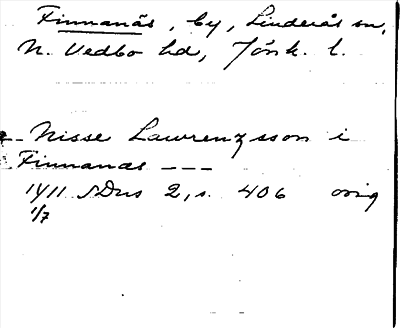 Finnanäs, by, Linderås sn,
N. Vedbo hd, Jönk. l.
Nisse Lawrenzsson i
Finnanæs ---
1411 SDns 2, s. 406 orig
1/7